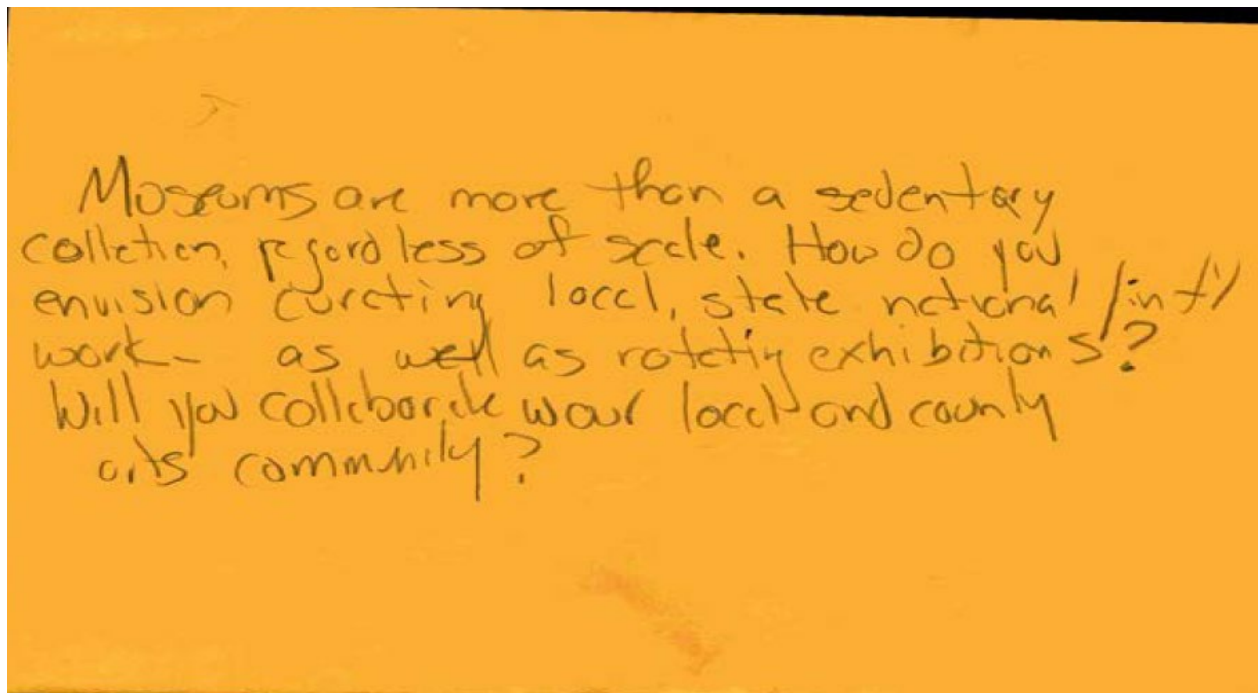 Museums are more than a sedentary
colletion, regardless of scale. How do you
envision curating local, state national / int'l
work - as well as rotating exhibitions?
Will you collaborate w our local and county
arts community?